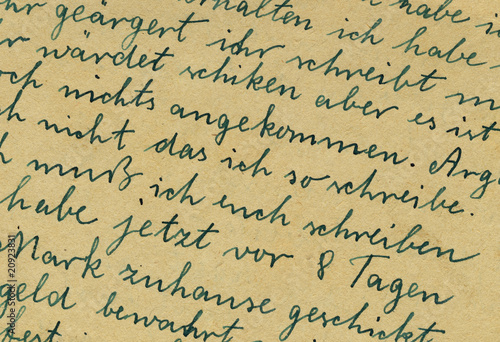 erhalten ich habe
hr geärgert ihr schreibt m
wärdet schiken aber es ist
och nichts angekommen. Arg
ch nicht das ich so schreibe.
muß ich euch schreiben
habe jetzt vor 8 Tagen
Mark zuhause geschickt
geld bewahrt